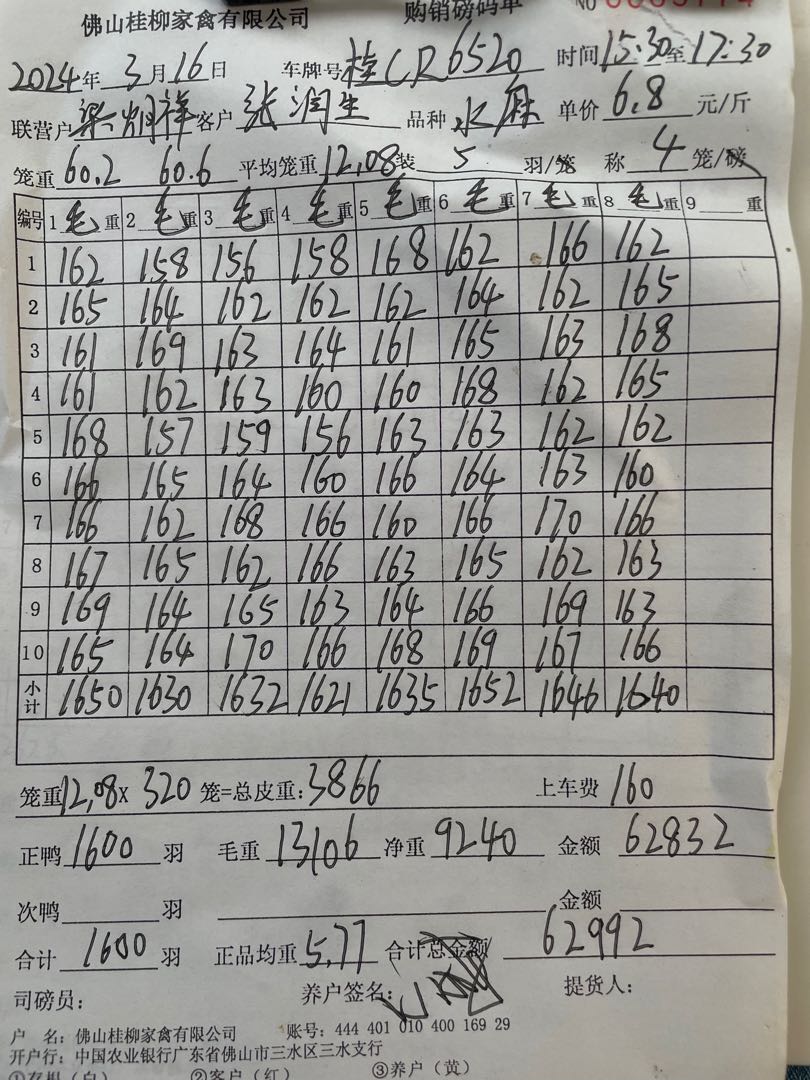 佛山桂柳家禽有限公司 购销磅码单 NO
2024年3月16日 车牌号 桂CR6520 时间 15:30至17:30
联营户 梁炯祥 客户 张润生 品种 水麻 单价 6.8 元/斤
笼重 60.2 60.6 平均笼重 12.08 装 5 羽/笼 称 4 笼/磅
编号 1 毛 重 2 毛 重 3 毛 重 4 毛 重 5 毛 重 6 毛 重 7 毛 重 8 毛 重 9 重
1 162 158 156 158 168 162 166 162
2 165 164 162 162 162 164 162 165
3 161 169 163 164 161 165 163 168
4 161 162 163 160 160 168 162 165
5 168 157 159 156 163 163 162 162
6 166 165 164 160 166 164 163 160
7 166 162 168 166 160 166 170 166
8 167 165 162 166 163 165 162 163
9 169 164 165 163 164 166 169 163
10 165 164 170 166 168 169 167 166
小计 1650 1630 1632 1621 1635 1652 1646 1640
笼重 12.08 X 320 笼=总皮重: 3866 上车费 160
正鸭 1600 羽 毛重 13106 净重 9240 金额 62832
次鸭 羽 金额
合计 1600 羽 正品均重 5.77 合计总金额 62992
司磅员: 养户签名: 提货人:
户 名: 佛山桂柳家禽有限公司 账号: 444 401 010 400 169 29
开户行: 中国农业银行广东省佛山市三水区三水支行
①存根(白) ②客户(红) ③养户(黄)